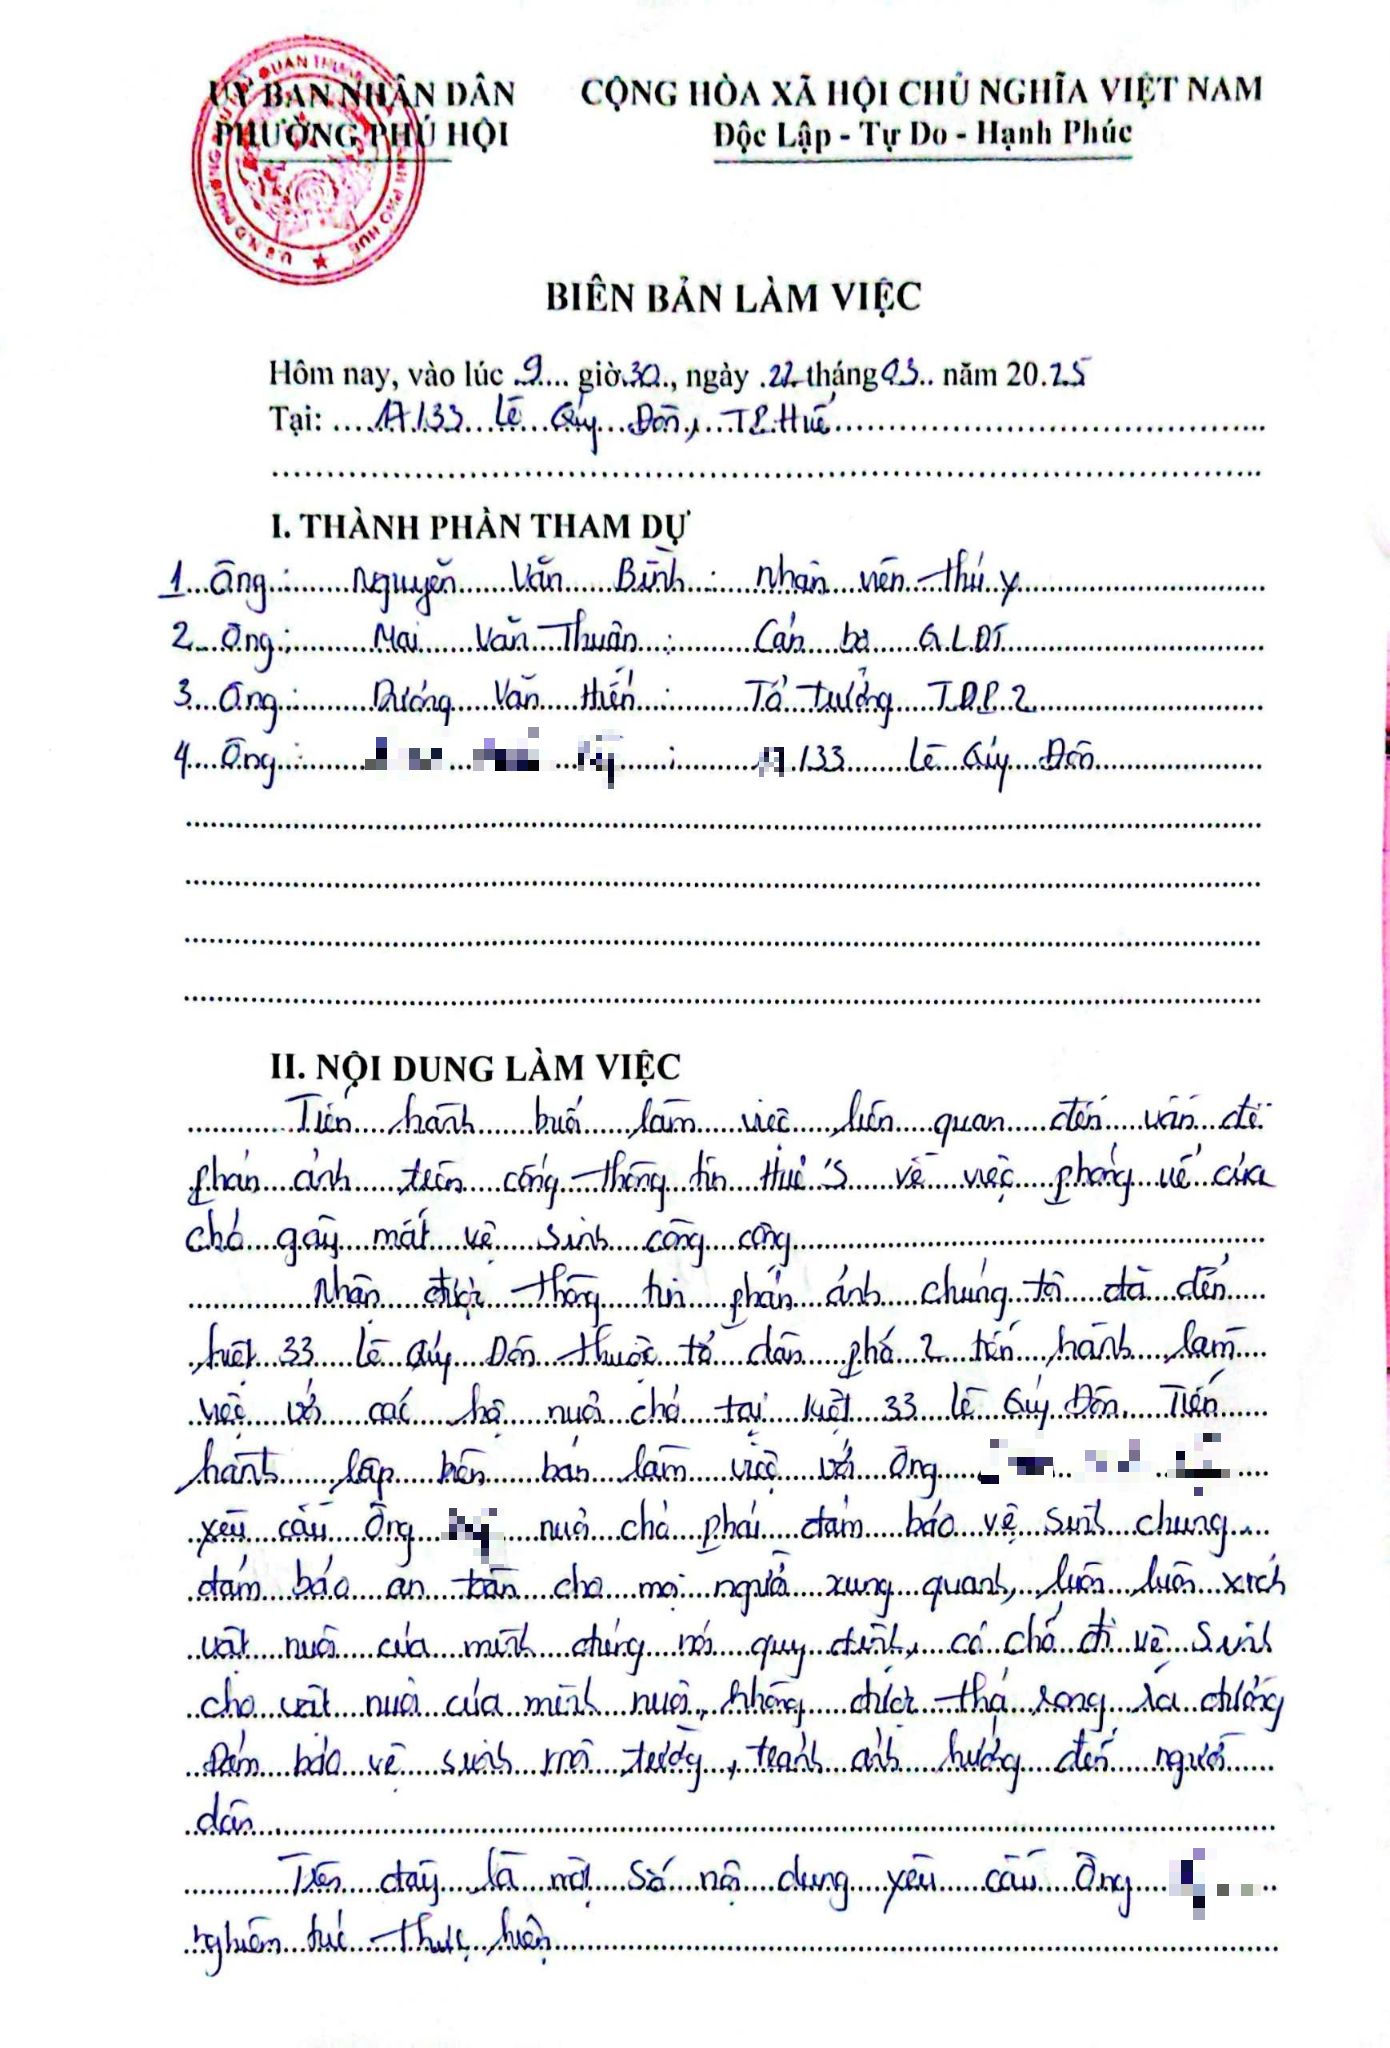 UỶ BAN NHÂN DÂN
PHƯỜNG PHÚ HỘI
CỘNG HÒA XÃ HỘI CHỦ NGHĨA VIỆT NAM
Độc Lập - Tự Do - Hạnh Phúc
BIÊN BẢN LÀM VIỆC
Hôm nay, vào lúc 9 giờ 30, ngày 22 tháng 03 năm 2025
Tại: 17/33 Lê Quý Đôn, TP Huế
I. THÀNH PHẦN THAM DỰ
1. Ông: Nguyễn Văn Bình: nhân viên thú y
2. Ông: Mai Văn Thuân: Cán bộ QLĐT
3. Ông: Dương Văn Hiến: Tổ trưởng TDP 2
4. Ông: : /33 Lê Quý Đôn
II. NỘI DUNG LÀM VIỆC
Tiến hành buổi làm việc liên quan đến vấn đề
phản ảnh trên cổng thông tin Huế S về việc phóng uế của
chó gây mất vệ sinh công cộng
Nhận được thông tin phản ánh chúng tôi đã đến
kiệt 33 Lê Quý Đôn thuộc tổ dân phố 2 tiến hành làm
việc với các hộ nuôi chó tại kiệt 33 Lê Quý Đôn Tiến
hành lập biên bản làm việc với Ông
yêu cầu Ông nuôi chó phải đảm bảo vệ sinh chung,
đảm bảo an toàn cho mọi người xung quanh, luôn luôn xích
vật nuôi của mình đúng nơi quy định, có chỗ đi vệ sinh
cho vật nuôi của mình nuôi, không được thả rong ra đường
Đảm bảo vệ sinh môi trường, tránh ảnh hưởng đến người
dân
Trên đây là một số nội dung yêu cầu Ông
nghiêm túc thực hiện